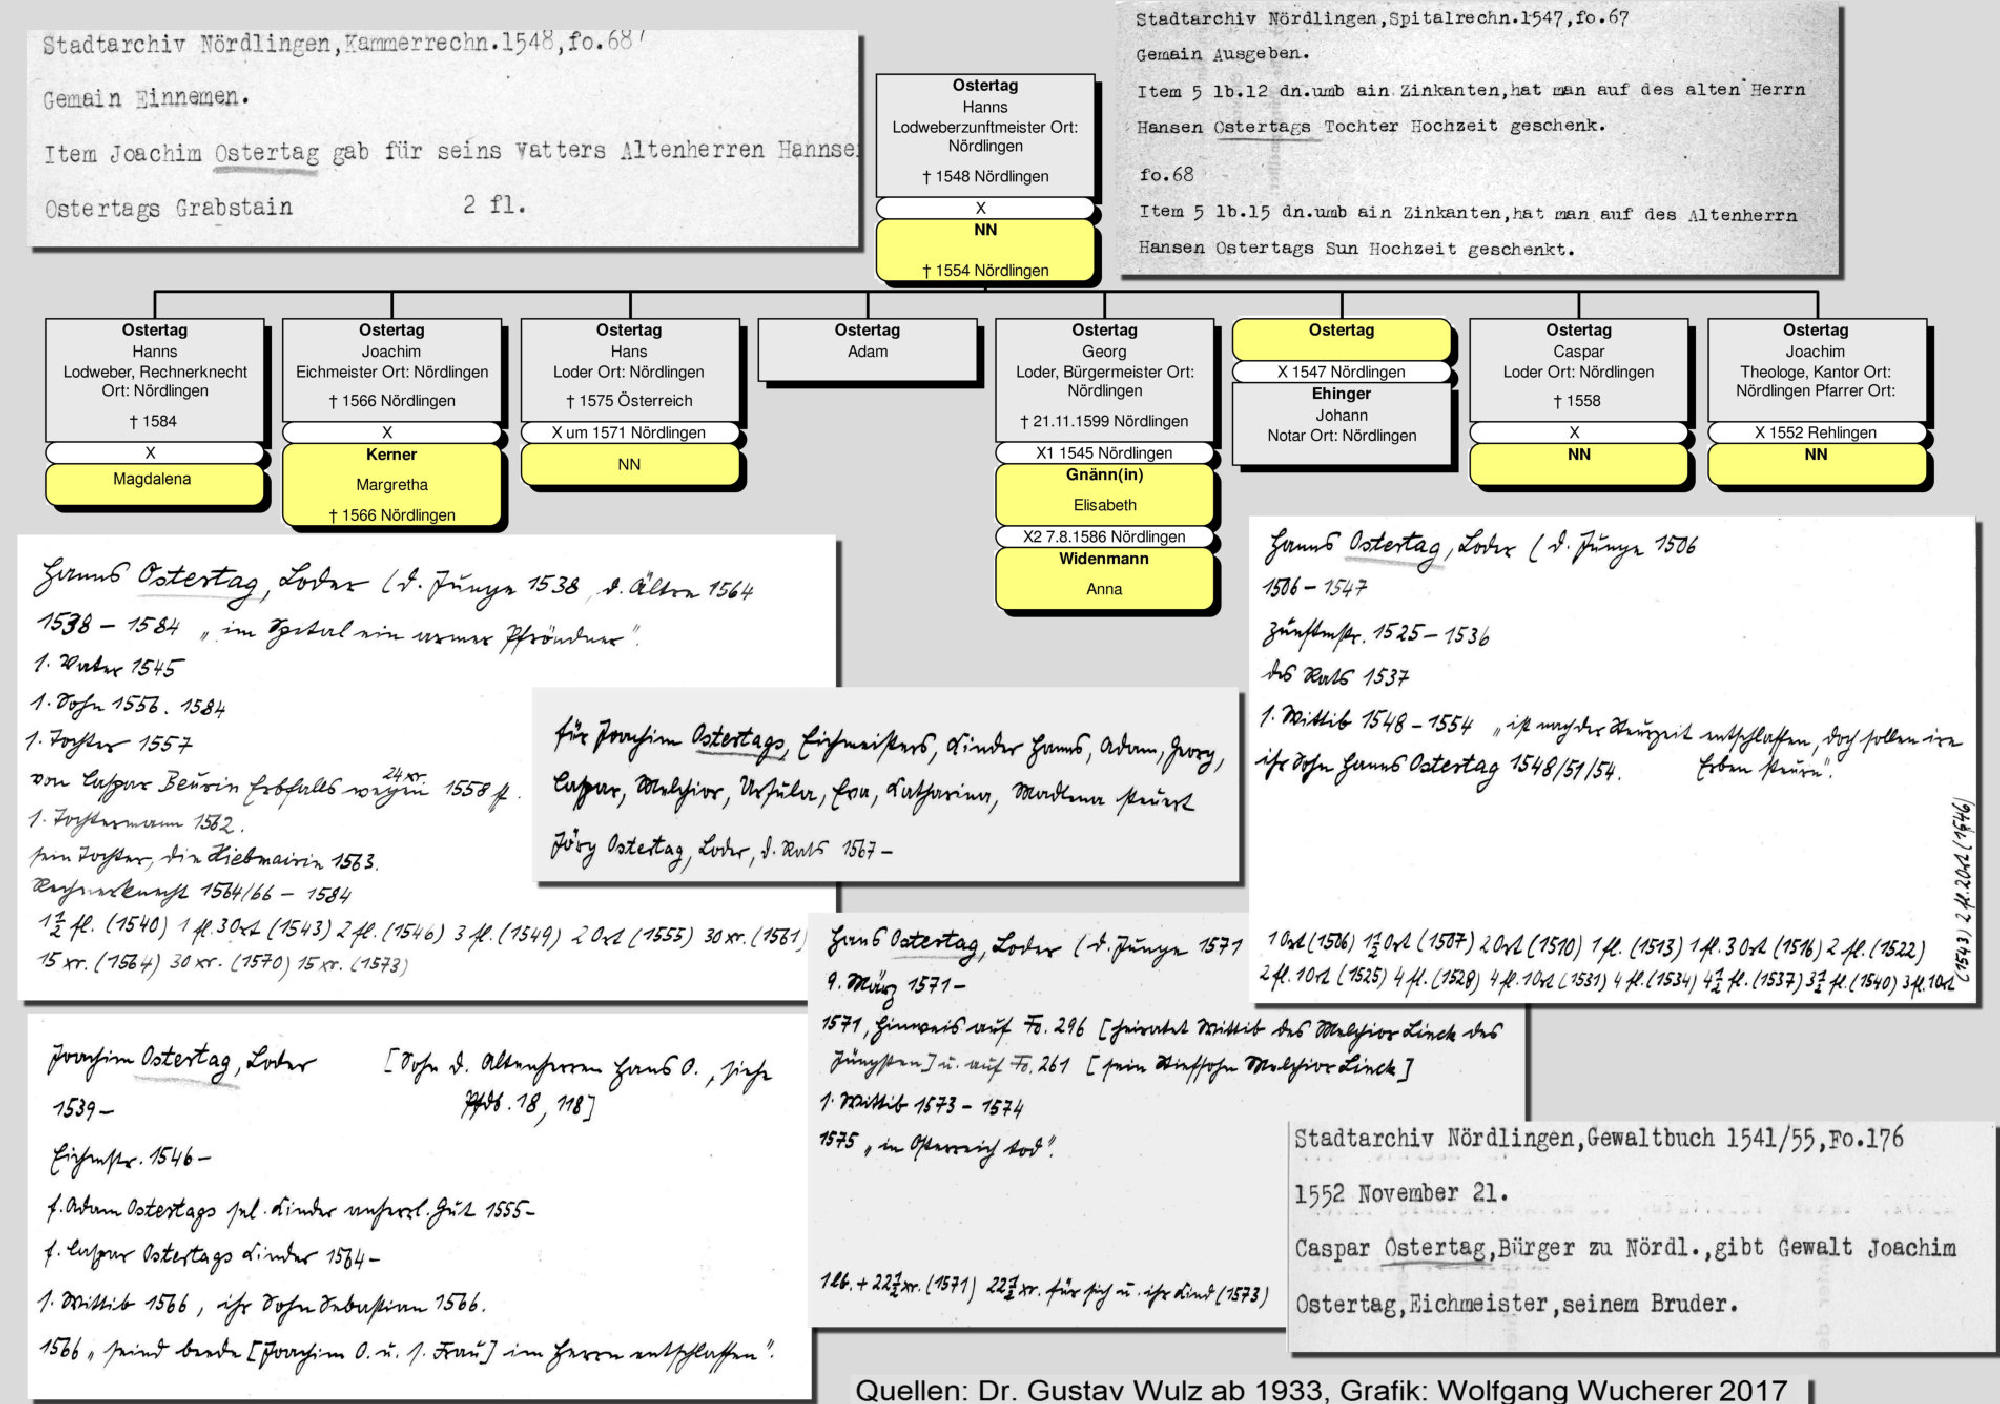 Stadtarchiv Nördlingen,Kammerrechn.1548,fo.68'
Gemain Einnemen.
Item Joachim Ostertag gab für seins Vatters Altenherren Hannse
Ostertags Grabstain 2 fl.
Stadtarchiv Nördlingen,Spitalrechn.1547,fo.67
Gemain Ausgeben.
Item 5 lb.12 dn.umb ain Zinkanten,hat man auf des alten Herrn
Hansen Ostertags Tochter Hochzeit geschenk.
fo.68
Item 5 lb.15 dn.umb ain Zinkanten,hat man auf des Altenherrn
Hansen Ostertags Sun Hochzeit geschenkt.
Ostertag
Hanns
Lodweberzunftmeister Ort:
Nördlingen
† 1548 Nördlingen
X
NN
† 1554 Nördlingen
Ostertag
Hanns
Lodweber, Rechnerknecht
Ort: Nördlingen
† 1584
X
Magdalena
Ostertag
Joachim
Eichmeister Ort: Nördlingen
† 1566 Nördlingen
X
Kerner
Margretha
† 1566 Nördlingen
Ostertag
Hans
Loder Ort: Nördlingen
† 1575 Österreich
X um 1571 Nördlingen
NN
Ostertag
Adam
Ostertag
Georg
Loder, Bürgermeister Ort:
Nördlingen
† 21.11.1599 Nördlingen
X1 1545 Nördlingen
Gnänn(in)
Elisabeth
X2 7.8.1586 Nördlingen
Widenmann
Anna
Ostertag
X 1547 Nördlingen
Ehinger
Johann
Notar Ort: Nördlingen
Ostertag
Caspar
Loder Ort: Nördlingen
† 1558
X
NN
Ostertag
Joachim
Theologe, Kantor Ort:
Nördlingen Pfarrer Ort:
X 1552 Rehlingen
NN
Hanns Ostertag, Loder (d. Junge 1538, d. Ältre 1564
1538 – 1584 „im Spital ein armer Pfröndner".
1. Vater 1545
1. Sohn 1556. 1584
1. Tochter 1557
von Caspar Beurin Erbfalls wegen 24 xr. 1558
1. Tochtermann 1562.
sein Tochter, die 1563.
Rechnerknecht 1564/66 – 1584
1½ fl. (1540) 1 fl. 3 Ort (1543) 2 fl. (1546) 3 fl. (1549) 2 Ort (1555) 30 xr. (1561)
15 xr. (1564) 30 xr. (1570) 15 xr. (1573)
für Joachim Ostertags, Eichmeisters, Kinder Hanns, Adam, Georg,
Caspar, Melchior, Ursula, Eva, Katharina, Madlena steuert
Jörg Ostertag, Loder, d. Rats 1567–
Hanns Ostertag, Loder (d. Junge 1506
1506 – 1547
Zunftmstr. 1525 – 1536
des Rats 1537
1. Wittib 1548 – 1554 „ist nach der Steurzeit entschlaffen, doch sollen ire
Erben steurn".
ihr Sohn Hanns Ostertag 1548/51/54.
1 Ort (1506) 1½ Ort (1507) 2 Ort (1510) 1 fl. (1513) 1 fl. 3 Ort (1516) 2 fl. (1522)
2 fl. 1 Ort (1525) 4 fl. (1528) 4 fl. 1 Ort (1531) 4 fl. (1534) 4½ fl. (1537) 3½ fl. (1540) 3 fl. 1 Ort
(1543) 2 fl. 2 Ort (1546)
Joachim Ostertag, Loder [Sohn d. Altenherren Hans O., siehe
Pfdb. 18, 118]
1539–
Eichmstr. 1546–
f. Adam Ostertags sel. Kinder anherrl. Gut 1555–
f. Caspar Ostertags Kinder 1564–
1. Wittib 1566, ihr Sohn Sebastian 1566.
1566 „seind beede [Joachim O. u. s. Frau] im Herrn entschlaffen".
Hans Ostertag, Loder (d. Junge 1571
9. März 1571–
1571, Hinweis auf Fo. 296 [heiratet Wittib des Melchior Linck des
Jüngsten] u. auf Fo. 261 [sein Stiefsohn Melchior Linck]
1. Wittib 1573 – 1574
1575 „in Österreich tod".
1 lb. + 22½ xr. (1571) 22½ xr. für sich u. ihr Kind (1573)
Stadtarchiv Nördlingen,Gewaltbuch 1541/55,Fo.176
1552 November 21.
Caspar Ostertag,Bürger zu Nördl.,gibt Gewalt Joachim
Ostertag,Eichmeister,seinem Bruder.
Quellen: Dr. Gustav Wulz ab 1933, Grafik: Wolfgang Wucherer 2017